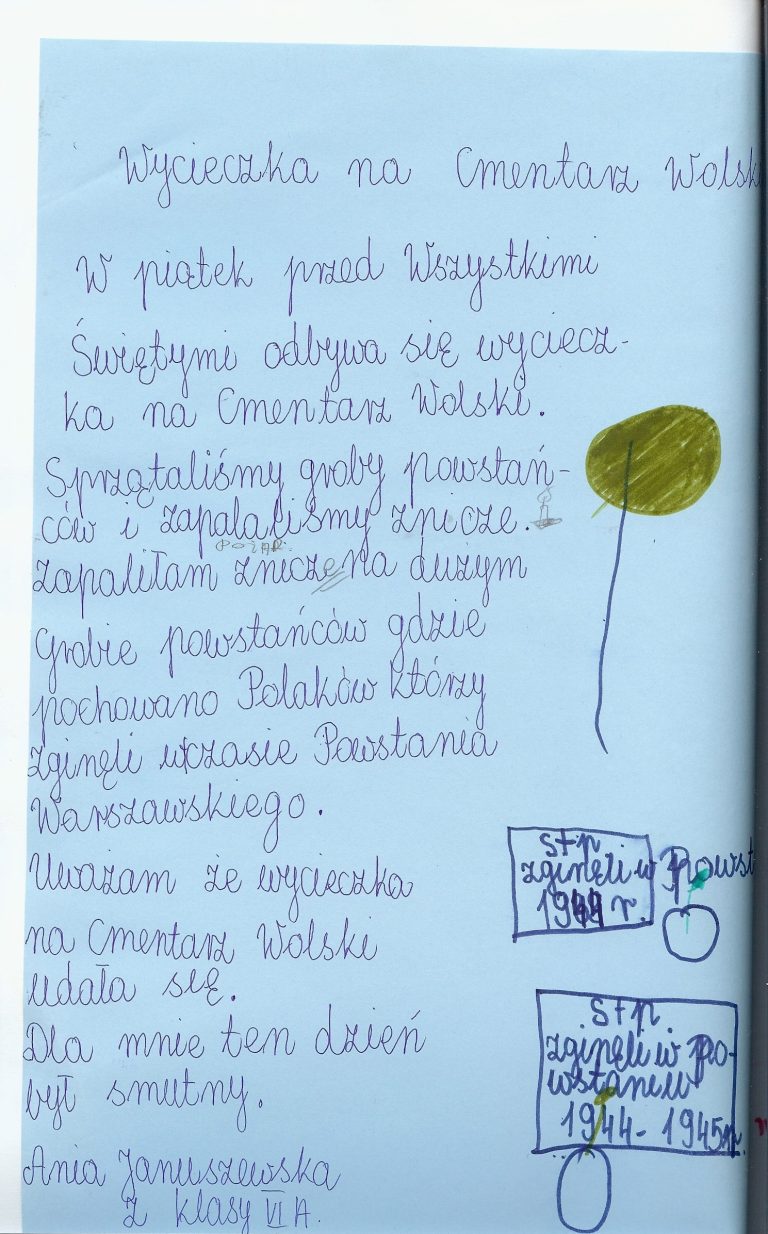 Wycieczka na Cmentarz Wolsk
W piątek przed Wszystkimi
Świętymi odbywa się wyciecz-
ka na Cmentarz Wolski.
Sprzątaliśmy groby powstań-
ców i zapalaliśmy znicze.
POŻAR.
Zapaliłam znicze na dużym
Grobie powstańców gdzie
pochowano Polaków którzy
zginęli wczasie Powstania
Warszawskiego.
Uważam że wycieczka
na Cmentarz Wolski
udała się.
Dla mnie ten dzień
był smutny.
Ania Januszewska
z klasy VI A.
ś+p
zginęli w Powst
1944 r.
ś+p.
zginęli w Po-
wstaniu
1944-1945r.